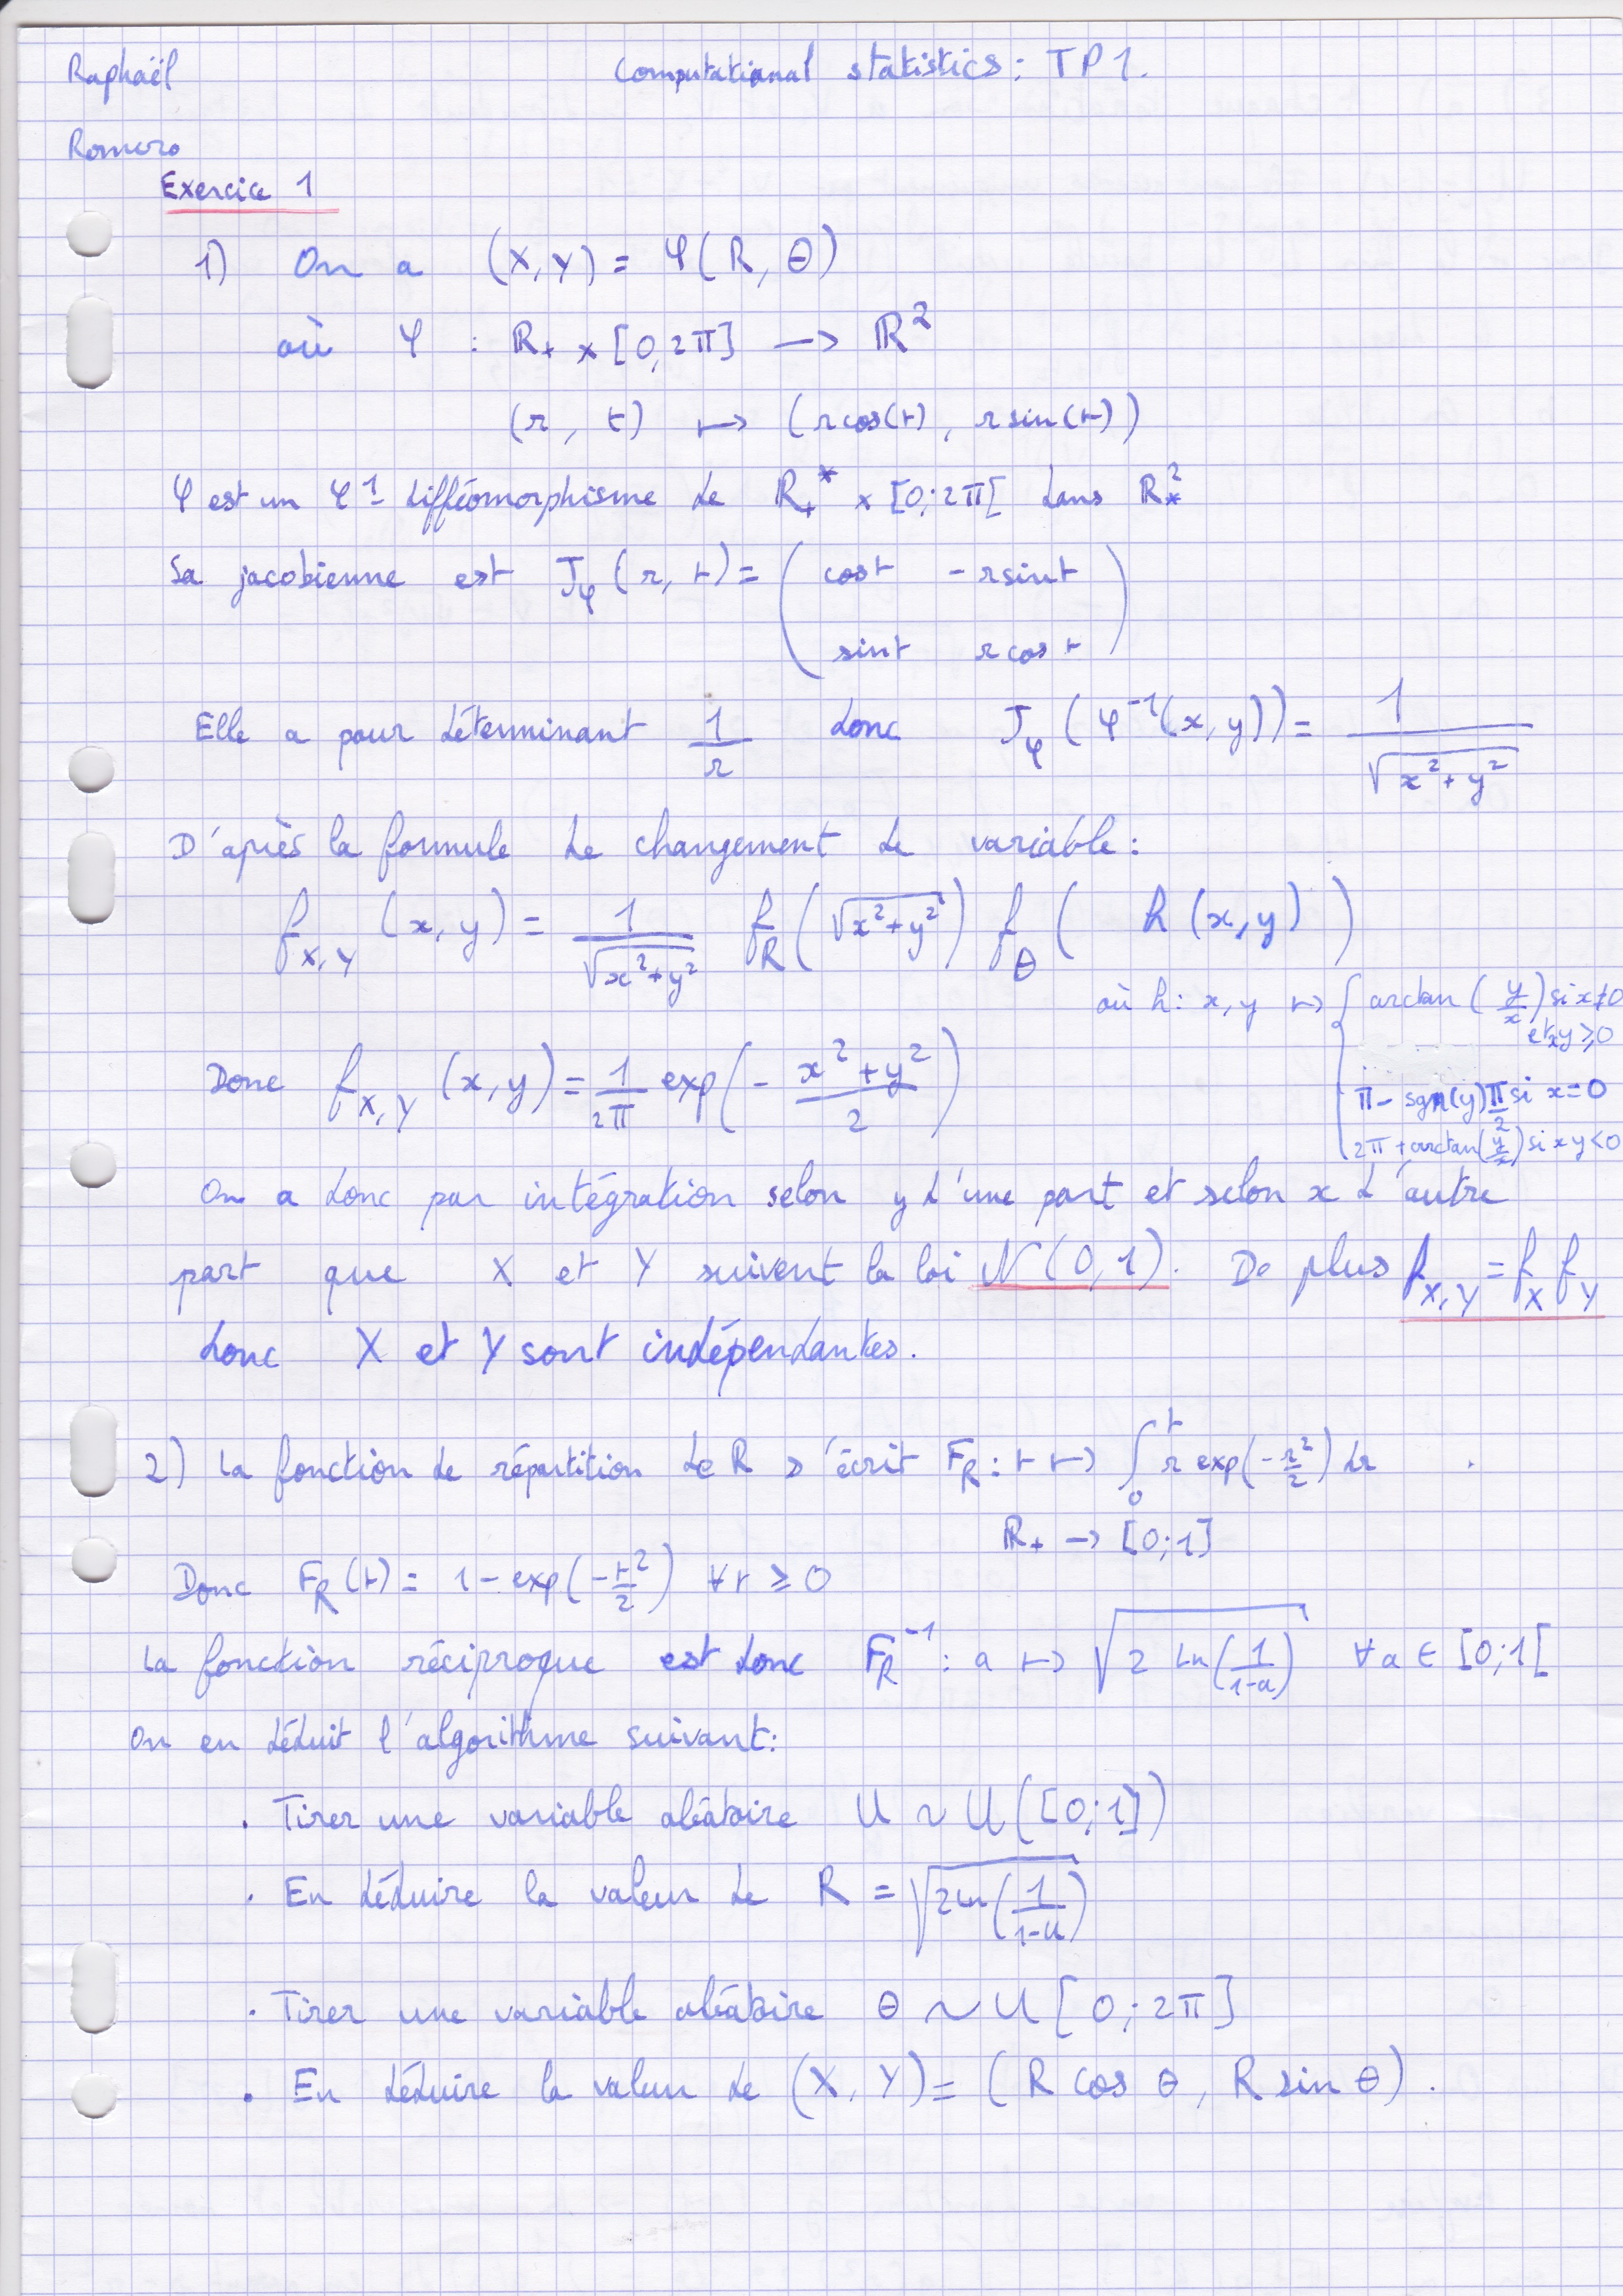 Raphaël
Computational statistics : TP 1.
Romero
Exercice 1
1) On a (X, Y) = φ(R, θ)
où φ : R₊ × [0, 2π] → ℝ²
(r, t) ↦ (r cos(t), r sin(t))
φ est un φ¹- difféomorphisme de R₊* × [0; 2π[ dans R²*
Sa jacobienne est J_φ (r, t) = ( cos t   - r sin t
sin t   r cos t )
Elle a pour déterminant 1/r donc J_φ (φ⁻¹(x, y)) = 1/√(x² + y²)
D'après la formule de changement de variable :
f_{X,Y} (x, y) = 1/√(x² + y²) f_R (√(x² + y²)) f_θ ( h (x, y) )
où h : x, y ↦ { arctan (y/x) si x≠0
et xy ≥ 0
π - sgn(y) π/2 si x = 0
2π + arctan(y/x) si xy < 0
Donc f_{X,Y} (x, y) = 1/2π exp(- (x² + y²)/2)
On a donc par intégration selon y d'une part et selon x d'autre
part que X et Y suivent la loi N(0, 1). De plus f_{X,Y} = f_X f_Y
donc X et Y sont indépendantes.
2) La fonction de répartition de R s'écrit F_R : t ↦ ∫₀ᵗ r exp(- r²/2) dr
R₊ → [0; 1]
Donc F_R (t) = 1 - exp(- t²/2) ∀t ≥ 0
La fonction réciproque est donc F_R⁻¹ : a ↦ √(2 ln(1/(1-a))) ∀a ∈ [0; 1[
On en déduit l'algorithme suivant :
. Tirer une variable aléatoire U ~ U([0; 1])
. En déduire la valeur de R = √(2 ln(1/(1-U)))
. Tirer une variable aléatoire θ ~ U[0; 2π]
. En déduire la valeur de (X, Y) = (R cos θ, R sin θ).